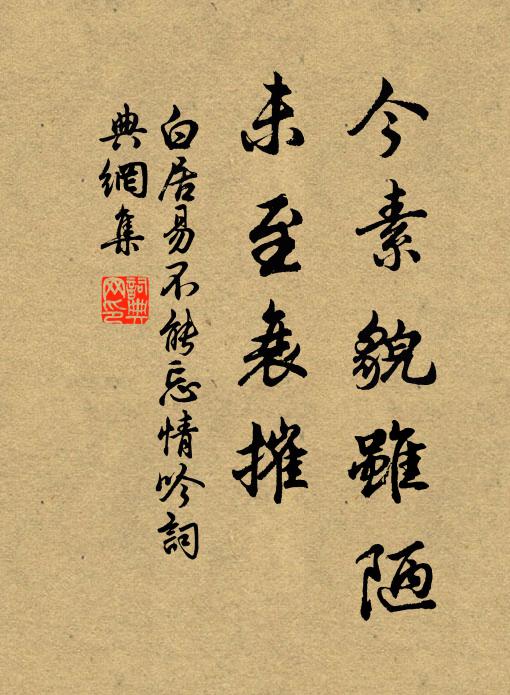 今素貌雖陋
未至衰摧
白居易不能忘情吟詞
典網集
詞典
网印